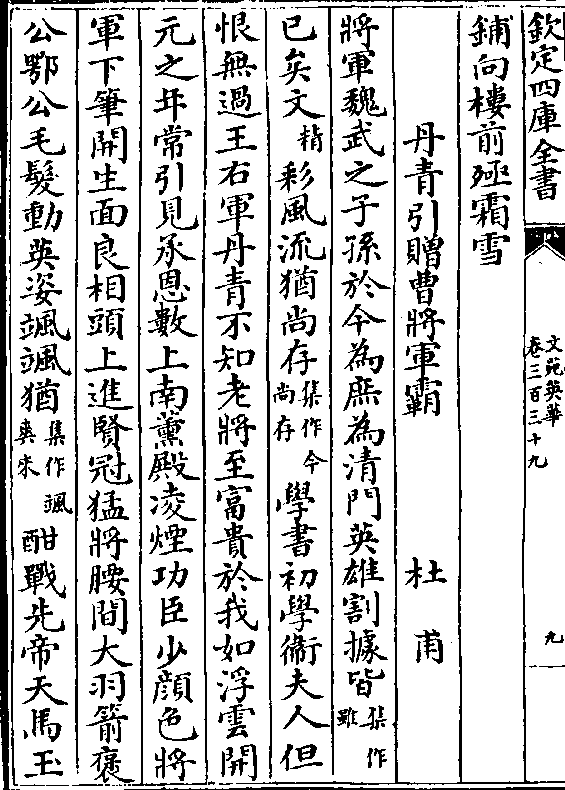 欽定四庫全書
文苑英華
卷三百三十九
九
鋪向樓前殛霜雪
丹青引贈曹將軍霸　杜甫
將軍魏武之子孫於今為庶為清門英雄割據皆集作雖
已矣文精彩風流猶尚存集作今尚存學書初學衞夫人但
恨無過王右軍丹青不知老將至富貴於我如浮雲開
元之年常引見承恩數上南薰殿凌煙功臣少顔色將
軍下筆開生面良相頭上進賢冠猛將腰間大羽箭褒
公鄂公毛髮動英姿颯颯猶集作颯爽來酣戰先帝天馬玉